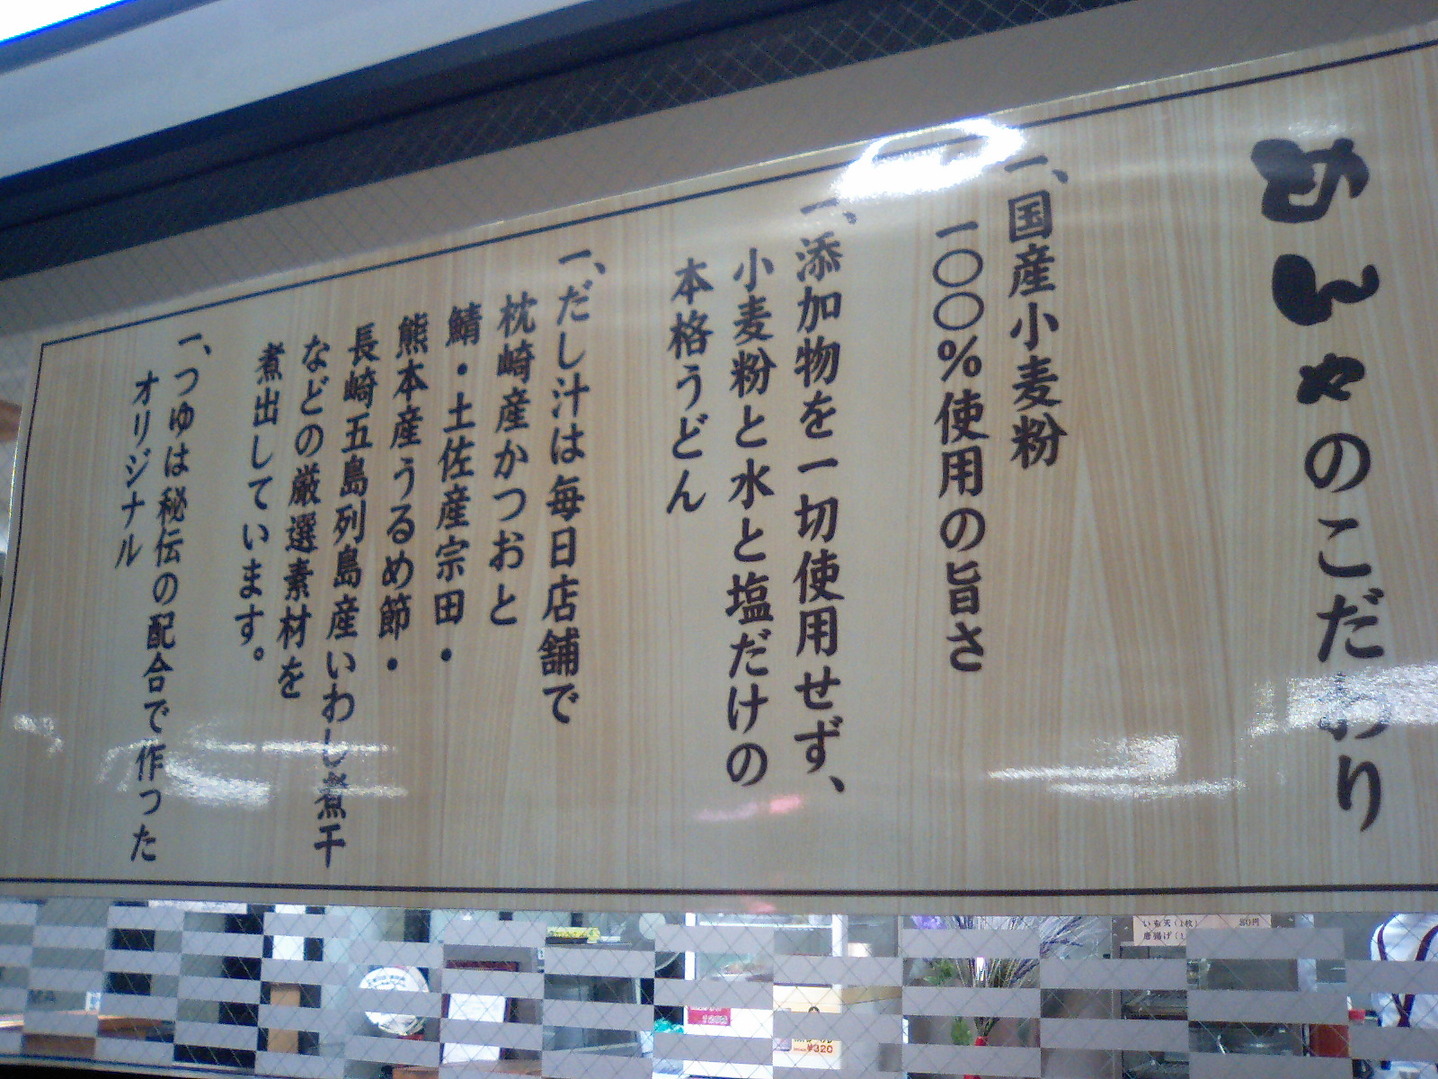 めんやのこだわり
一、国産小麦粉
一〇〇%使用の旨さ
一、添加物を一切使用せず、
小麦粉と水と塩だけの
本格うどん
一、だし汁は毎日店舗で
枕崎産かつおと
鯖・土佐産宗田・
熊本産うるめ節・
長崎五島列島産いわし煮干
などの厳選素材を
煮出しています。
一、つゆは秘伝の配合で作った
オリジナル
¥320